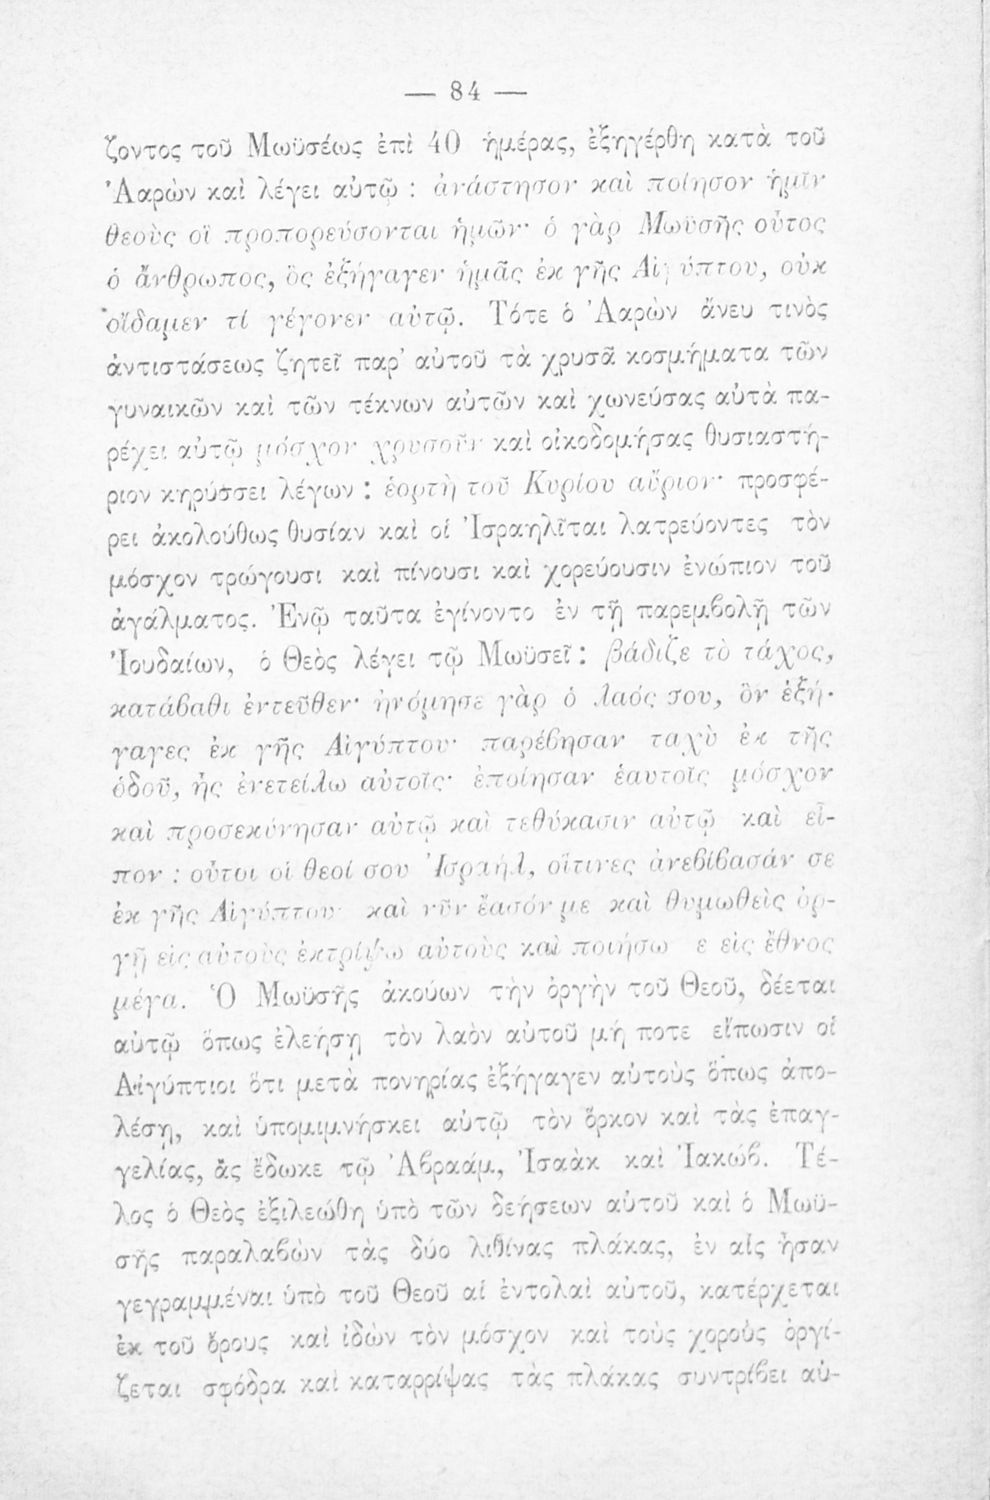 — 84 —
ζοντος τοῦ Μωϋσέως ἐπὶ 40 ἡμέρας, ἐξηγέρθη κατὰ τοῦ
Ἀαρὼν καὶ λέγει αὐτῷ : ἀνάστησον καὶ ποίησον ἡμῖν
θεοὺς οἳ προπορεύσονται ἡμῶν· ὁ γὰρ Μωϋσῆς οὗτος
ὁ ἄνθρωπος, ὃς ἐξήγαγεν ἡμᾶς ἐκ γῆς Αἰγύπτου, οὐκ
οἴδαμεν τί γέγονεν αὐτῷ. Τότε ὁ Ἀαρὼν ἄνευ τινὸς
ἀντιστάσεως ζητεῖ παρ' αὐτοῦ τὰ χρυσᾶ κοσμήματα τῶν
γυναικῶν καὶ τῶν τέκνων αὐτῶν καὶ χωνεύσας αὐτὰ πα-
ρέχει αὐτῷ μόσχον χρυσοῦν καὶ οἰκοδομήσας θυσιαστή-
ριον κηρύσσει λέγων : ἑορτὴ τοῦ Κυρίου αὔριον· προσφέ-
ρει ἀκολούθως θυσίαν καὶ οἱ Ἰσραηλῖται λατρεύοντες τὸν
μόσχον τρώγουσι καὶ πίνουσι καὶ χορεύουσιν ἐνώπιον τοῦ
ἀγάλματος. Ἐνῷ ταῦτα ἐγίνοντο ἐν τῇ παρεμβολῇ τῶν
Ἰουδαίων, ὁ Θεὸς λέγει τῷ Μωϋσεῖ : βάδιζε τὸ τάχος,
κατάβαθι ἐντεῦθεν· ἠνόμησε γὰρ ὁ λαός σου, ὃν ἐξή-
γαγες ἐκ γῆς Αἰγύπτου· παρέβησαν ταχὺ ἐκ τῆς
ὁδοῦ, ἧς ἐνετείλω αὐτοῖς· ἐποίησαν ἑαυτοῖς μόσχον
καὶ προσεκύνησαν αὐτῷ καὶ τεθύκασιν αὐτῷ καὶ εἶ-
πον : οὗτοι οἱ θεοί σου Ἰσραήλ, οἵτινες ἀνεβίβασάν σε
ἐκ γῆς Αἰγύπτου· καὶ νῦν ἔασόν με καὶ θυμωθεὶς ὀρ-
γῇ εἰς αὐτοὺς ἐκτρίψω αὐτοὺς καὶ ποιήσω ε εἰς ἔθνος
μέγα. Ὁ Μωϋσῆς ἀκούων τὴν ὀργὴν τοῦ Θεοῦ, δέεται
αὐτῷ ὅπως ἐλεήσῃ τὸν λαὸν αὐτοῦ μή ποτε εἴπωσιν οἱ
Αἰγύπτιοι ὅτι μετὰ πονηρίας ἐξήγαγεν αὐτοὺς ὅπως ἀπο-
λέσῃ, καὶ ὑπομιμνήσκει αὐτῷ τὸν ὅρκον καὶ τὰς ἐπαγ-
γελίας, ἃς ἔδωκε τῷ Ἀβραάμ, Ἰσαὰκ καὶ Ἰακώβ. Τέ-
λος ὁ Θεὸς ἐξιλεώθη ὑπὸ τῶν δεήσεων αὐτοῦ καὶ ὁ Μωϋ-
σῆς παραλαβὼν τὰς δύο λιθίνας πλάκας, ἐν αἷς ἦσαν
γεγραμμέναι ὑπὸ τοῦ Θεοῦ αἱ ἐντολαὶ αὐτοῦ, κατέρχεται
ἐκ τοῦ ὄρους καὶ ἰδὼν τὸν μόσχον καὶ τοὺς χοροὺς ὀργί-
ζεται σφόδρα καὶ καταρρίψας τὰς πλάκας συντρίβει αὐ-